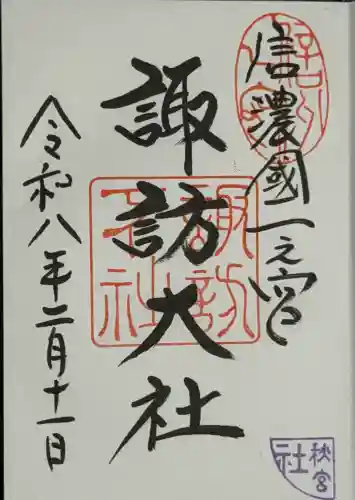 信濃國一之宮
諏訪大社
令和八年二月十一日
諏訪大社
秋宮
社